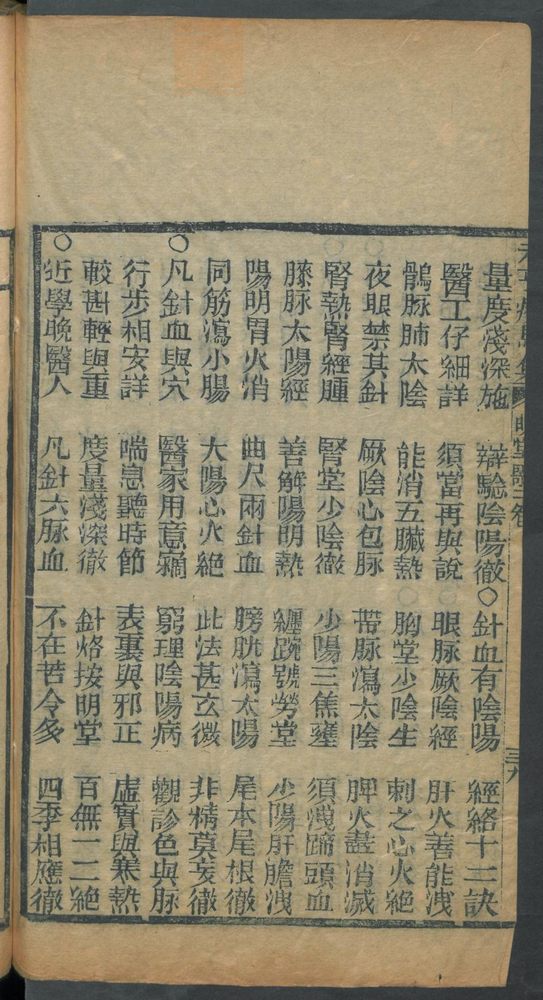 量度淺深施 辯驗陰陽徹○針血有陰陽 經絡十二訣
醫工仔細詳 須當再與說○眼脉厥陰經 肝火善能洩
鶻脉肺太陰 能消五臟熱○胸堂少陰生 刺之心火絕
夜眼禁其針 厥陰心包脉 帶脉瀉太陰 脾火盡消滅
○腎熱腎經腫 腎堂少陰徹 少陽三焦壅 須洩蹄頭血
膝脉太陽經 善解陽明熱 纏腕號勞堂 少陽肝膽洩
陽明胃火消 曲尺兩針血 膀胱瀉太陽 尾本尾根徹
同筋瀉小腸 大陽心火絕 此法甚玄微 非精莫妄徹
○凡針血與穴 醫家用意竊 窮理陰陽病 觀診色與脉
行步相安詳 喘息聽時節 表裏與邪正 虛實與寒熱
較斟輕與重 度量淺深徹 針烙按明堂 百無一二絕
○近學晚醫人 凡針六脉血 不在苦令多 四季相應徹
明堂歌
卷
三九